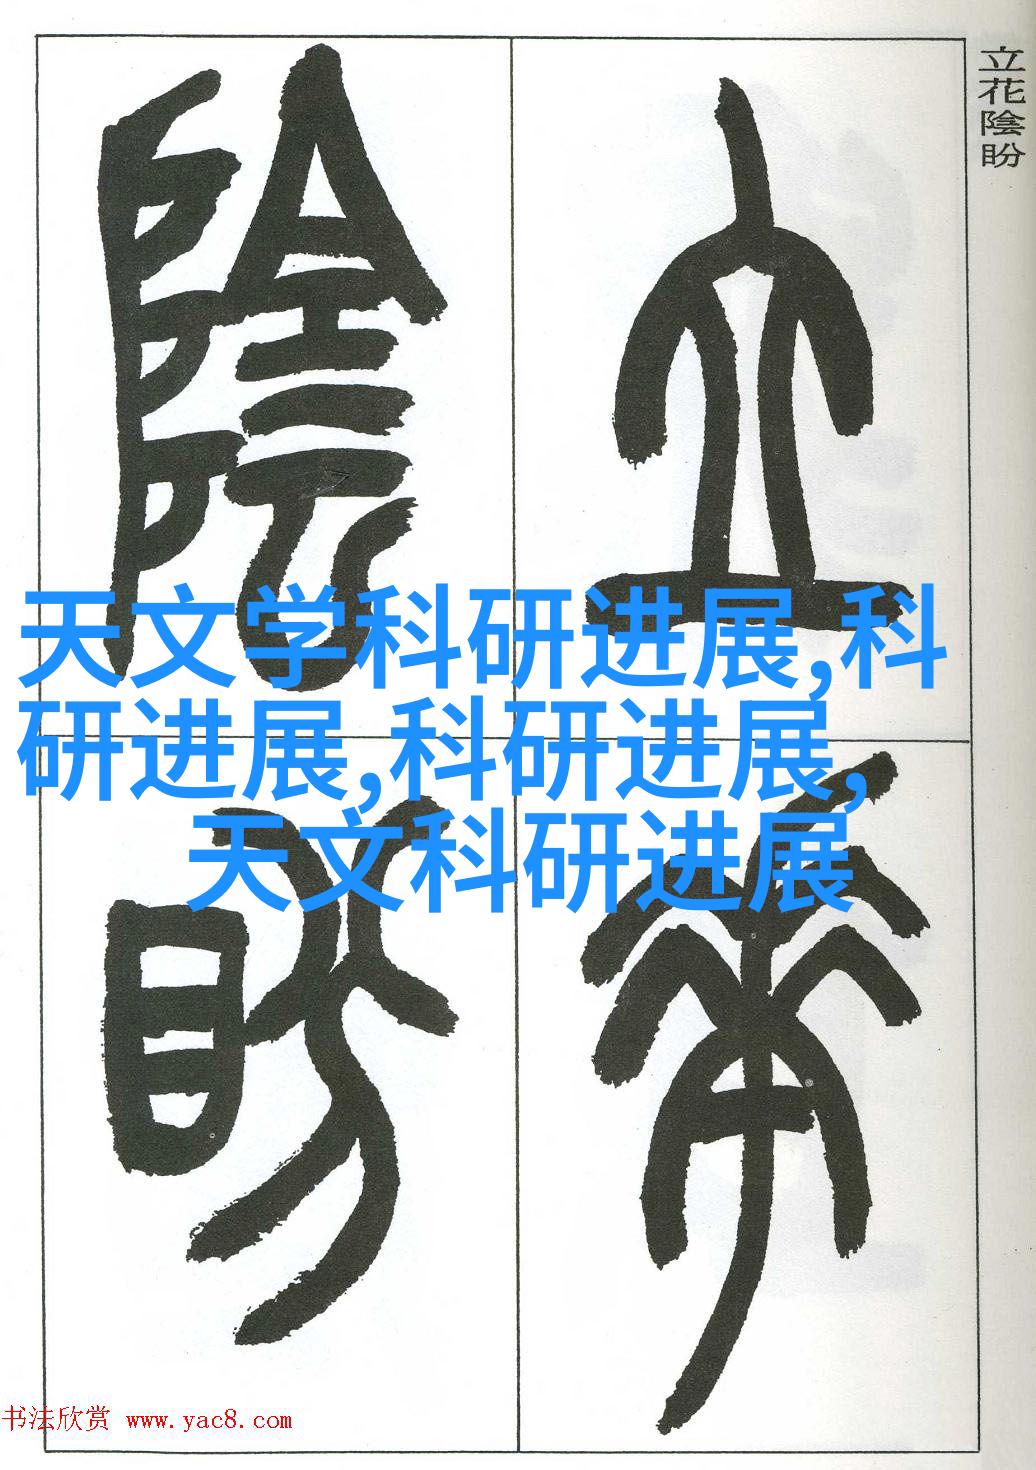 立花陰盼
立
花
陰
盼
天文学科研进展,科
研进展,科研进展,
天文科研进展
书法欣赏 www.yac8.com